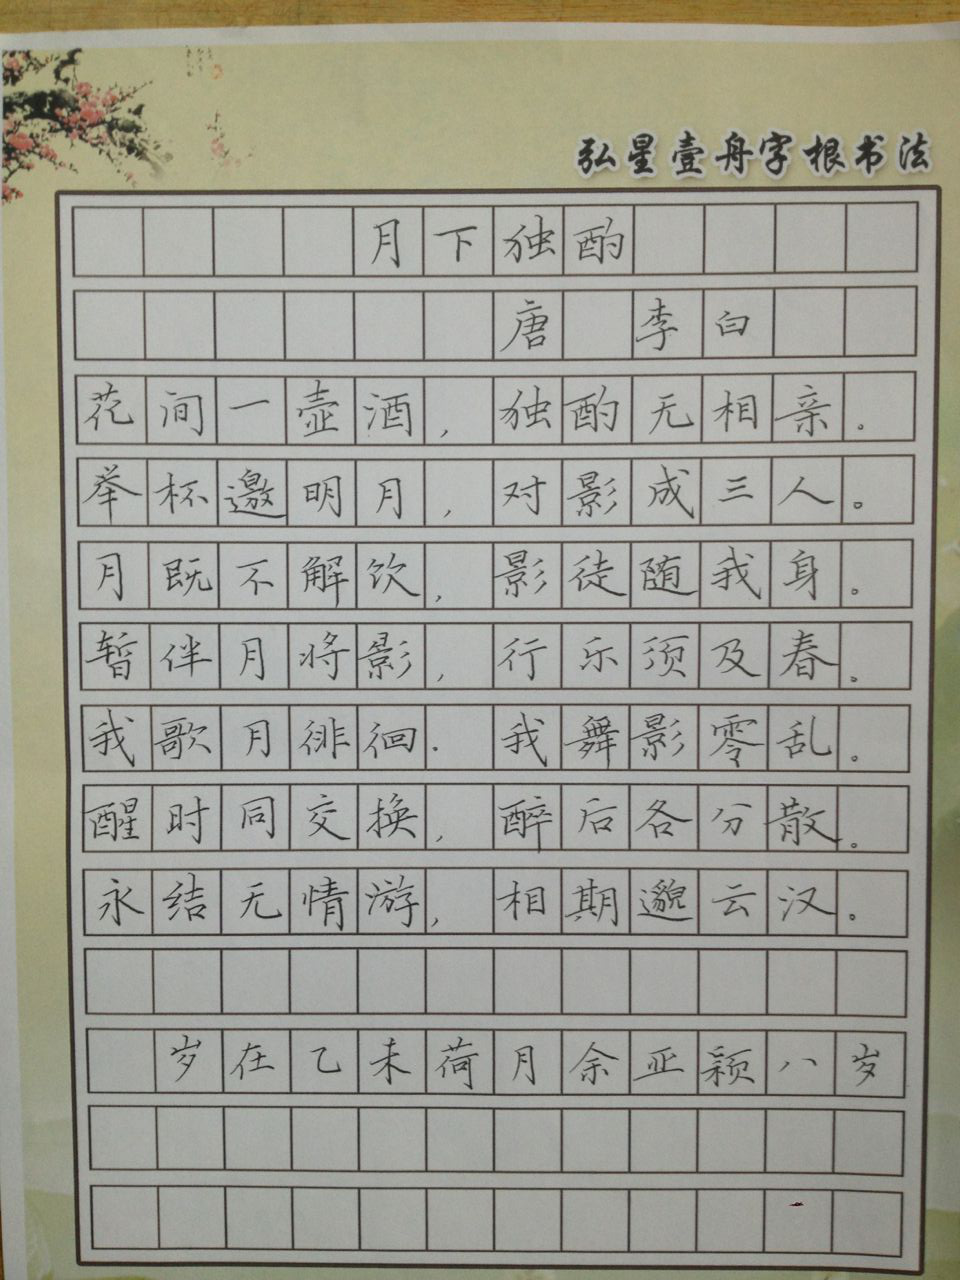 弘星壹舟字根书法
月下独酌
唐 李白
花间一壶酒，独酌无相亲。
举杯邀明月，对影成三人。
月既不解饮，影徒随我身。
暂伴月将影，行乐须及春。
我歌月徘徊.我舞影零乱。
醒时同交换，醉后各分散。
永结无情游，相期邈云汉。
岁在乙未荷月余亚颖八岁